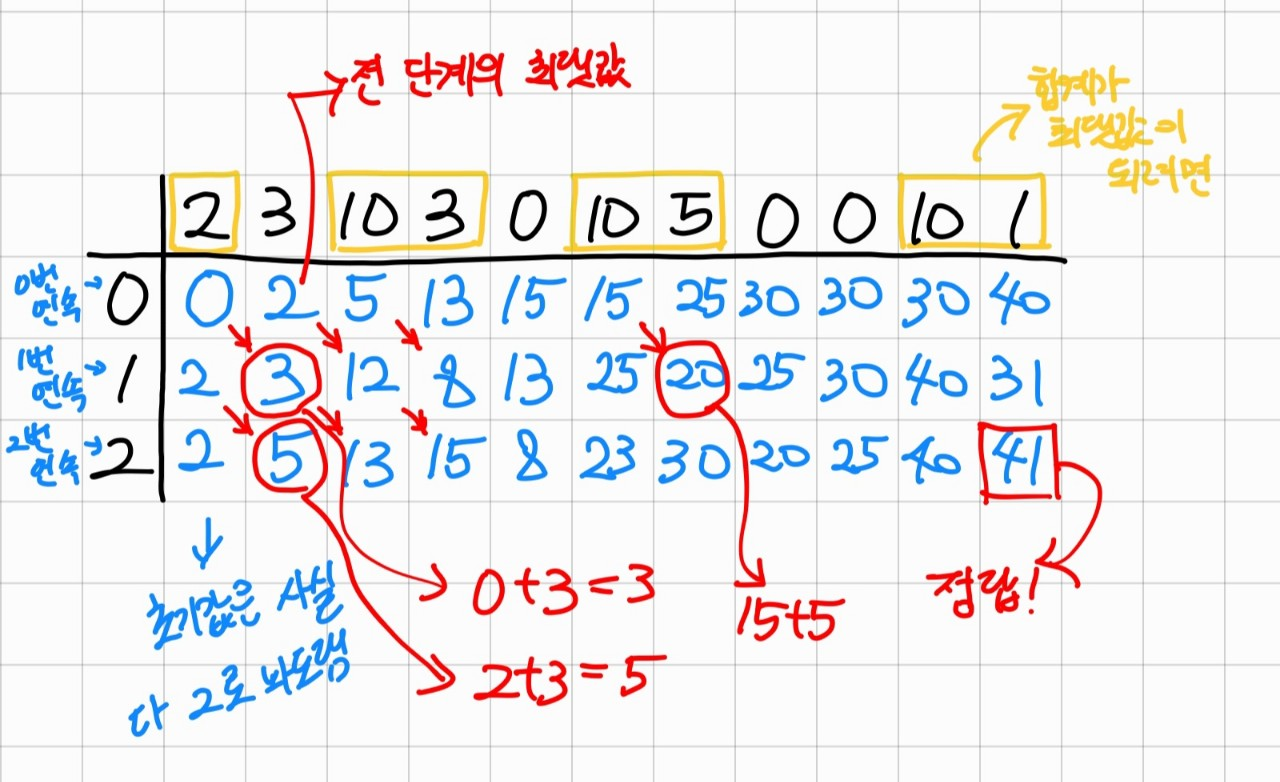 전 단계의 최댓값
합계가
최댓값이
되려면
2 3 10 3 0 10 5 0 0 10 1
0번
연속 → 0 0 2 5 13 15 15 25 30 30 30 40
1번
연속 → 1 2 3 12 8 13 25 20 25 30 40 31
2번
연속 → 2 2 5 13 15 8 23 30 20 25 40 41
초기값은 사실
다 2로 봐도됨
0+3=3
2+3=5
15+5
정답!